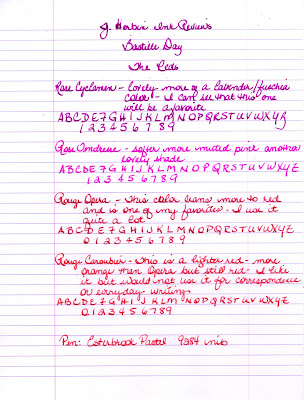 J. Herbin Ink Reviews
Bastille Day
The Reds
Rose Cyclamen - Lovely more of a lavender/fuschia
color - I can see that this one
will be a favorite
ABCDEFGHIJKLMNOPQRSTUVWXYZ
1 2 3 4 5 6 7 8 9
Rose Tendresse - softer more muted pink another
lovely shade
ABCDEFGHIJKLMNOPQRSTUVWXYZ
1 2 3 4 5 6 7 8 9
Rouge Opera - This color leans more to red
and is one of my favorites - I use it
quite a lot
ABCDEFGHIJKLMNOPQRSTUVWXYZ
0 1 2 3 4 5 6 7 8 9
Rouge Caroubier - This is a lighter red - more
orange than Opera but still red - I like
it but would not use it for correspondence
or everyday writing
ABCDEFGHIJKLMNOPQRSTUVWXYZ
0 1 2 3 4 5 6 7 8 9
Pen: Esterbrook Pastel 9284 nib